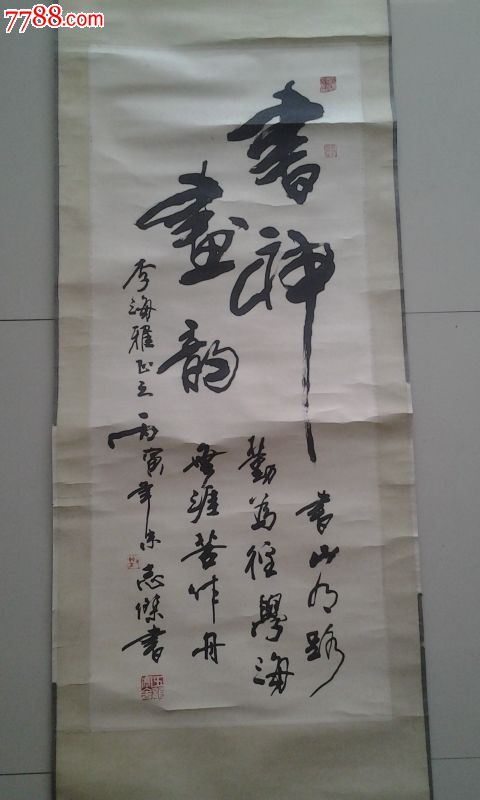 7788.com
書神
畫韵
書山有路
勤為徑學海
無涯苦作舟
李海雅正之
丙寅年朱志傑書